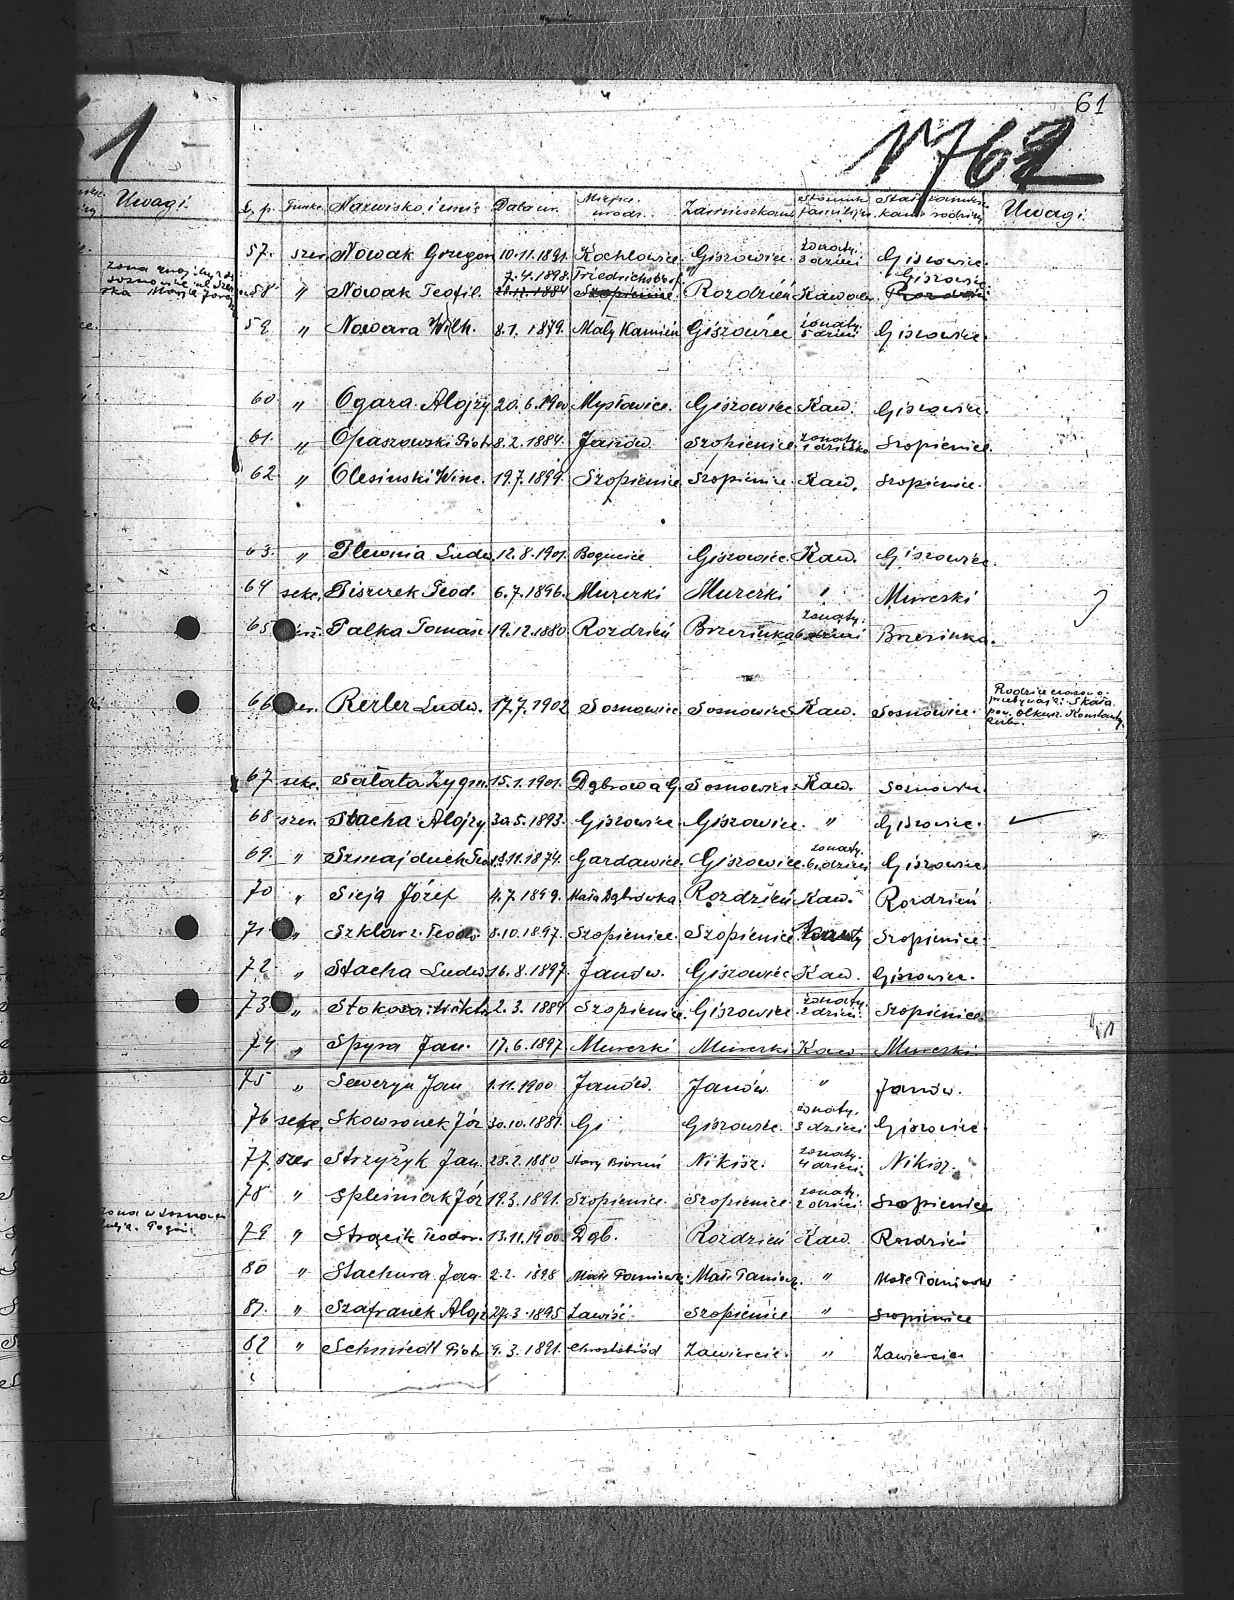 61
1
1762
Uwagi
L.p. Funkc. Nazwisko i imię Data ur. Miejsce urodz. Zamieszkanie Stosunki familijne Stałe zamieszkanie rodziny Uwagi
57. szer. Nowak Grzegorz 10.11.1891. Kochłowice Giszowiec żonaty. 3 dzieci Giszowiec.
7.4.1898. Friedrichsdorf Giszowiec
58. " Nowak Teofil. 28.12.1884 Szopienice Rozdzień Kawaler
59. " Nowara Wilh. 8.1.1879. Mały Kamień Giszowiec żonaty. 5 dzieci Giszowiec.
60. " Ogara Alojzy 20.6.1900 Mysłowice. Giszowiec Kaw. Giszowiec.
61. " Opaszowski Piotr 8.2.1884. Janów. Szopienice. żonaty. 1 dziecko Szopienice.
62 " Olesinski Winc. 19.7.1899. Szopienice Szopienice. Kaw. Szopienice.
63. " Plewnia Ludw. 12.8.1901. Bogucice Giszowiec. Kaw. Giszowiec.
64 sekc. Piszczek Teod. 6.7.1896. Murcki Murcki " Murcki
65 Palka Tomasz. 19.12.1880 Rozdzień Brzezinka żonaty. 6 dzieci Brzezinka.
66 Rezler Ludw. 17.7.1902 Sosnowiec Sosnowiec Kaw. Sosnowiec. Rodzice czasowo. mieszkają: Skała. pow. Olkusz. Konstanty
67 sekc. Sałata Zygm. 15.1.1901. Dąbrowa G. Sosnowiec. Kaw. Sosnowiec
68 szer. Stacha Alojzy 30.5.1893. Giszowiec Giszowiec. " Giszowiec.
69. " Szmajduch Teo. 13.11.1874. Gardawice. Giszowiec. żonaty. 6 dzieci Giszowiec
70 " Sieja Józef 4.7.1899. Mała Dąbrówka Rozdzień Kaw. Rozdzień
71. " Szklarz Teodor 8.10.1897. Szopienice. Szopienice Szopienice.
72 " Stacha Ludw. 16.8.1897 Janów. Giszowiec Kaw. Giszowiec.
73. " Stokosa Wikt. 2.3.1884 Szopienice. Giszowiec żonaty. 2 dzieci Szopienice
74 " Spyra Jan. 17.6.1897. Murcki Murcki Kaw. Murcki
75 " Seweryn Jan 1.11.1900 Janów. Janów. " Janów.
76 sekc. Skowronek Józ 30.10.1881. Gi Giszowiec. żonaty. 3 dzieci Giszowiec
77. szer Strzyżyk Jan. 28.2.1880 Stary Bieruń Nikisz. żonaty. 4 dzieci. Nikisz.
78 " Spleśniak Józ 19.3.1891. Szopienice. Szopienice żonaty. 2 dzieci Szopienice
79 " Strącik Teodor. 13.11.1900 Dąb. Rozdzień Kaw. Rozdzień
80 " Stachura Jan 2.2.1898 Małe Paniowy. Małe Paniowy. " Małe Paniowy
81. " Szafranek Alojz 27.3.1895 Zawiść. Szopienice " Szopienice
82 " Schmiedt Piotr 9.3.1891. Zawiercie. " Zawiercie